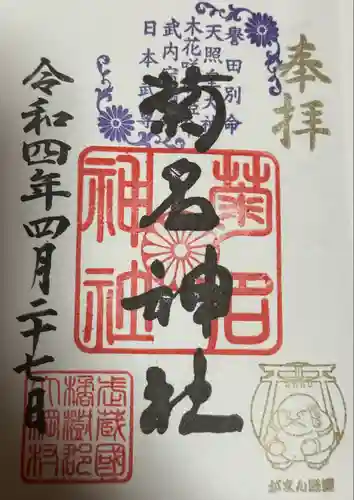 奉拝
譽田別命
天照皇大神
木花咲
武内宿
日本武尊
菊名神社
菊名
神社
令和四年四月二十七日
武蔵國
橘樹郡
がまん様